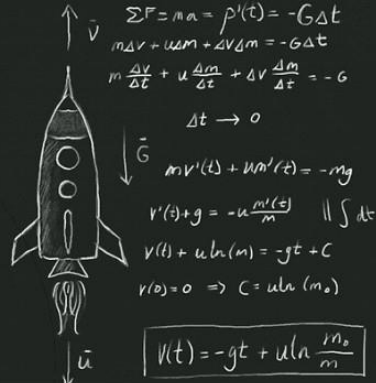 v̄
ΣF = ma = p'(t) = -GΔt
mΔv + uΔm + ΔvΔm = -GΔt
m Δv/Δt + u Δm/Δt + Δv Δm/Δt = -G
Δt → 0
Ḡ
mv'(t) + um'(t) = -mg
v'(t)+g = -u m'(t)/m || ∫ dt
v(t) + uln(m) = -gt + C
v(0)=0 => C = uln(m₀)
v(t) = -gt + uln m₀/m
ū